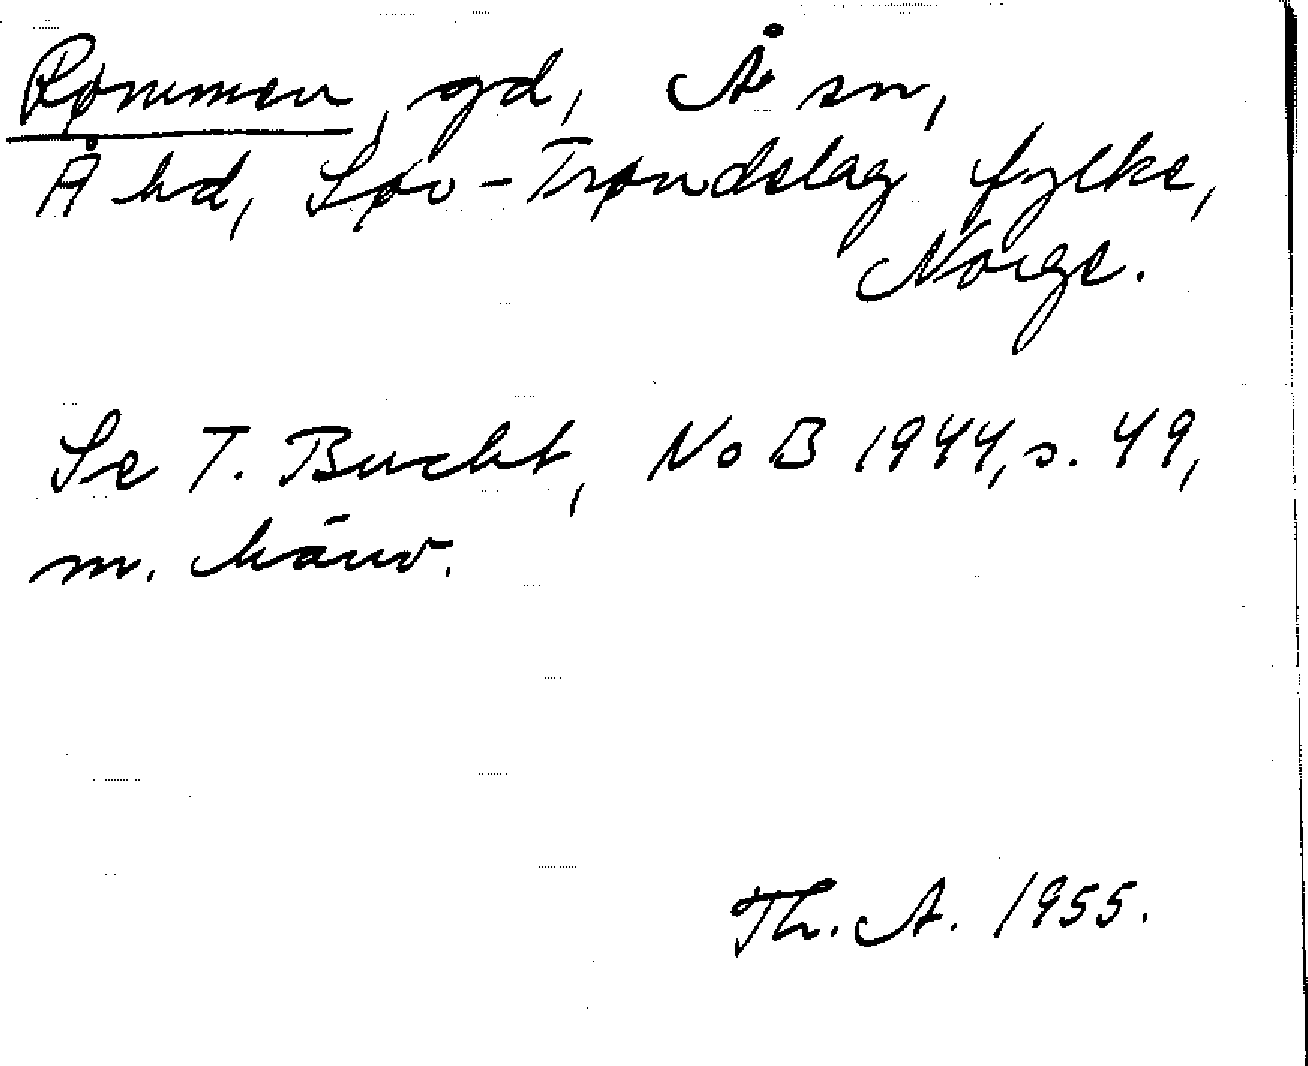 Rømmen, gd, Å sn,
Å hd, Sør-Trøndelag fylke,
Norge.
Se T. Bucht, NoB 1944, s. 49,
m. hänv.
Th. A. 1955.